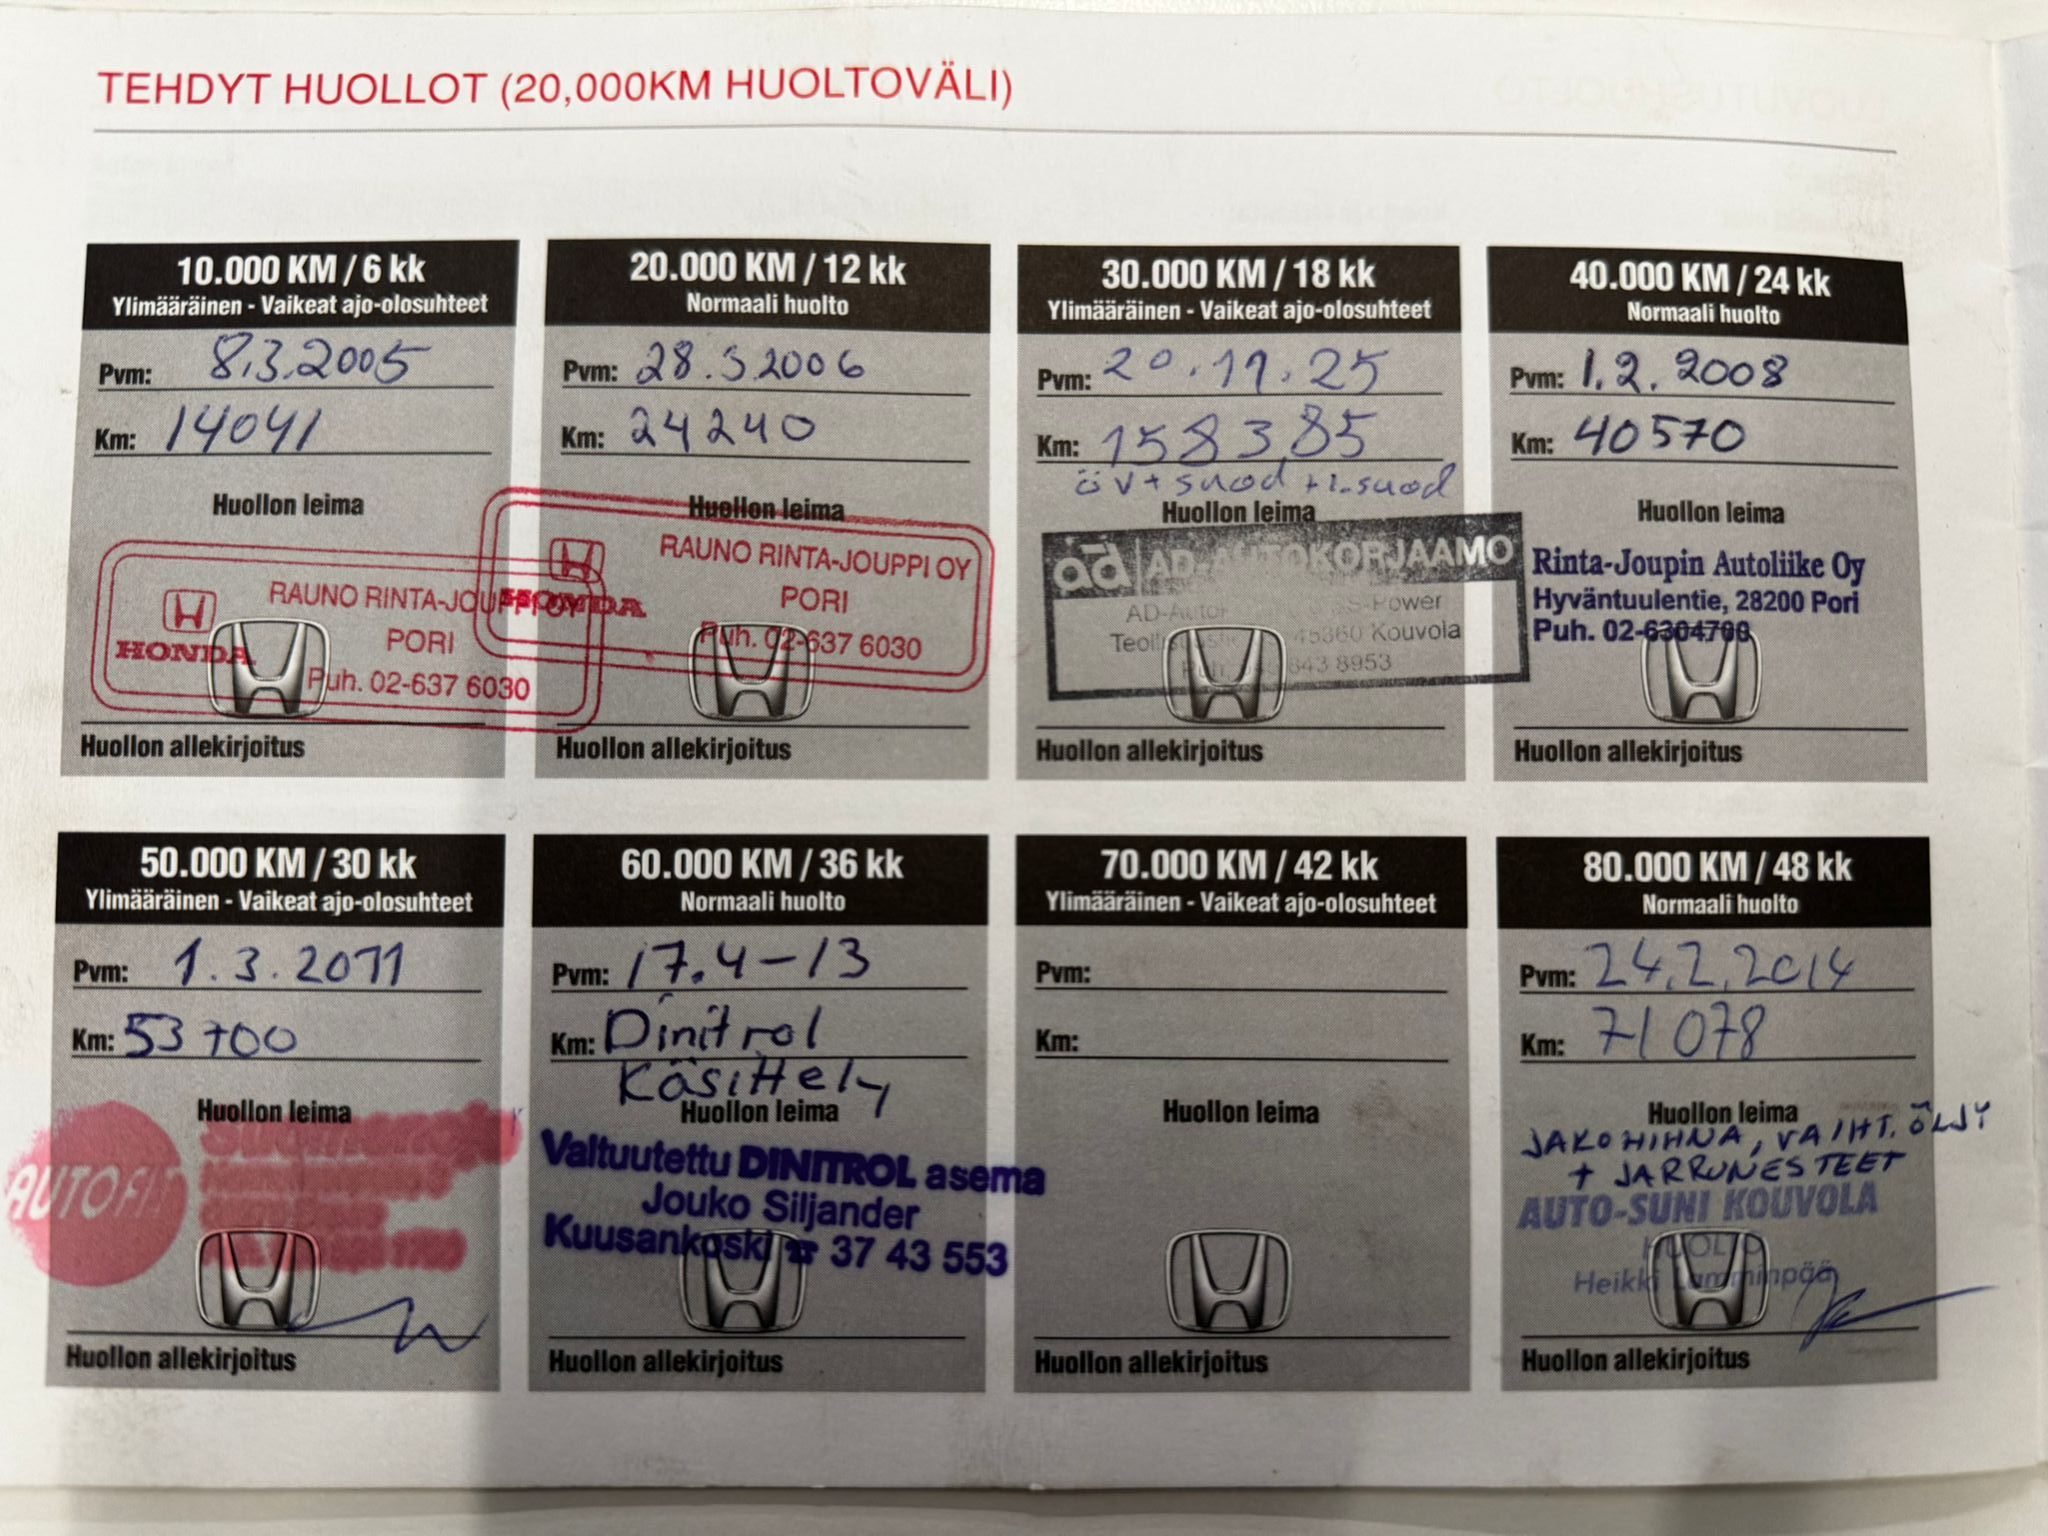 TEHDYT HUOLLOT (20,000KM HUOLTOVÄLI)
10.000 KM / 6 kk
Ylimääräinen - Vaikeat ajo-olosuhteet
Pvm: 8.3.2005
Km: 14041
Huollon leima
RAUNO RINTA-JOUPPI OY
HONDA
PORI
Puh. 02-637 6030
Huollon allekirjoitus
20.000 KM / 12 kk
Normaali huolto
Pvm: 28.3.2006
Km: 24240
Huollon leima
RAUNO RINTA-JOUPPI OY
HONDA
PORI
Puh. 02-637 6030
Huollon allekirjoitus
30.000 KM / 18 kk
Ylimääräinen - Vaikeat ajo-olosuhteet
Pvm: 20.11.25
Km: 158385
öv + suod + i.suod
Huollon leima
ad AD-AUTOKORJAAMO
S-Power
45360 Kouvola
843 8953
Huollon allekirjoitus
40.000 KM / 24 kk
Normaali huolto
Pvm: 1.2.2008
Km: 40570
Huollon leima
Rinta-Joupin Autoliike Oy
Hyväntuulentie, 28200 Pori
Puh. 02-6304700
Huollon allekirjoitus
50.000 KM / 30 kk
Ylimääräinen - Vaikeat ajo-olosuhteet
Pvm: 1.3.2011
Km: 53700
Huollon leima
AUTOFIT
Huollon allekirjoitus
60.000 KM / 36 kk
Normaali huolto
Pvm: 17.4-13
Km: Dinitrol
Käsittely
Huollon leima
Valtuutettu DINITROL asema
Jouko Siljander
Kuusankoski ☎ 37 43 553
Huollon allekirjoitus
70.000 KM / 42 kk
Ylimääräinen - Vaikeat ajo-olosuhteet
Pvm:
Km:
Huollon leima
Huollon allekirjoitus
80.000 KM / 48 kk
Normaali huolto
Pvm: 24.2.2014
Km: 71078
Huollon leima
JAKOHIHNA, VAIHT. ÖLJY
+ JARRUNESTEET
AUTO-SUNI KOUVOLA
HUOLTO
Heikki Lamminpää
Huollon allekirjoitus